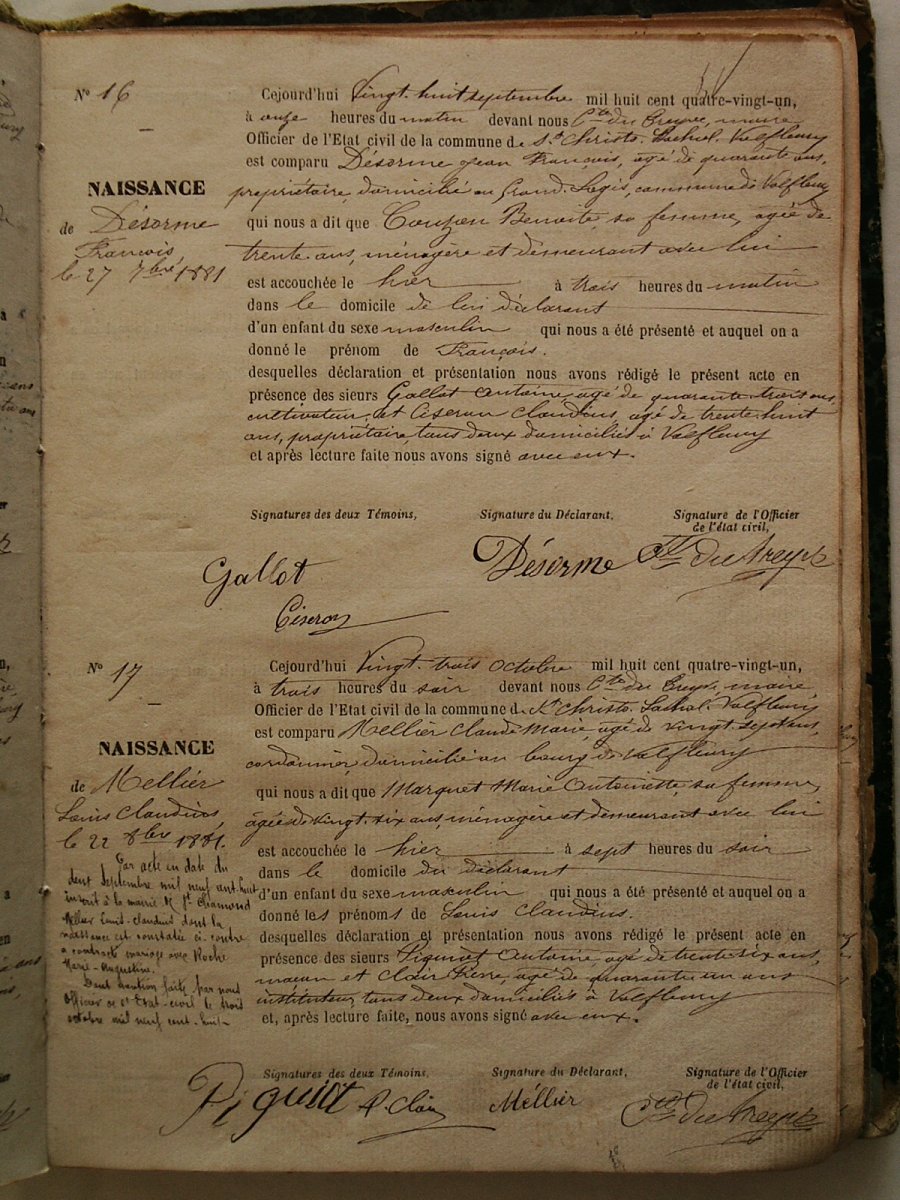 N° 16
NAISSANCE
de Désorme
François,
le 27 7bre 1881
Cejourd'hui Vingt-huit septembre mil huit cent quatre-vingt-un,
à onze heures du matin devant nous Cte du Treyve, maire
Officier de l'Etat civil de la commune de St Christo-Lachal-Valfleury
est comparu Désorme Jean François, agé de quarante ans,
propriétaire, domicilié au Grand-Logis, commune de Valfleury
qui nous a dit que Couzon Benoite, sa femme, agée de
trente ans, ménagère et demeurant avec lui
est accouchée le hier à trois heures du matin
dans le domicile de lui déclarant
d'un enfant du sexe masculin qui nous a été présenté et auquel on a
donné le prénom de François.
desquelles déclaration et présentation nous avons rédigé le présent acte en
présence des sieurs Gallot Antoine, agé de quarante-trois ans,
cultivateur, et Ciseron Claudius, agé de trente-huit
ans, propriétaire, tous deux domiciliés à Valfleury
et après lecture faite nous avons signé avec eux.
Signatures des deux Témoins, Signature du Déclarant, Signature de l'Officier
de l'état civil,
Gallot Désorme Cte du Treyve
Ciseron
N° 17
NAISSANCE
de Mellier
Louis Claudius,
le 22 8bre 1881.
Par acte en date du
deux Septembre mil neuf cent-huit
inscrit à la mairie de St Chamond
Mellier Louis-Claudius dont la
naissance est constatée ci-contre
a contracté mariage avec Roche
Marie-Augustine.
Dont mention faite par nous
Officier de l'Etat-civil le trois
octobre mil neuf cent-huit.
Cejourd'hui Vingt-trois octobre mil huit cent quatre-vingt-un,
à trois heures du soir devant nous Cte du Treyve, maire
Officier de l'Etat civil de la commune de St Christo-Lachal-Valfleury
est comparu Mellier Claude Marie agé de vingt-sept ans,
cordonnier, domicilié au bourg de Valfleury
qui nous a dit que Marquet Marie Antoinette, sa femme,
agée de vingt-six ans, ménagère et demeurant avec lui
est accouchée le hier à sept heures du soir
dans le domicile du déclarant
d'un enfant du sexe masculin qui nous a été présenté et auquel on a
donné les prénoms de Louis Claudius.
desquelles déclaration et présentation nous avons rédigé le présent acte en
présence des sieurs Piguiot Antoine, agé de trente-six ans,
maçon et Clair Pierre, agé de quarante un ans
instituteur, tous deux domiciliés à Valfleury
et, après lecture faite, nous avons signé avec eux.
Signatures des deux Témoins, Signature du Déclarant, Signature de l'Officier
de l'état civil,
Piguiot P. Clair Méllier Cte du Treyve